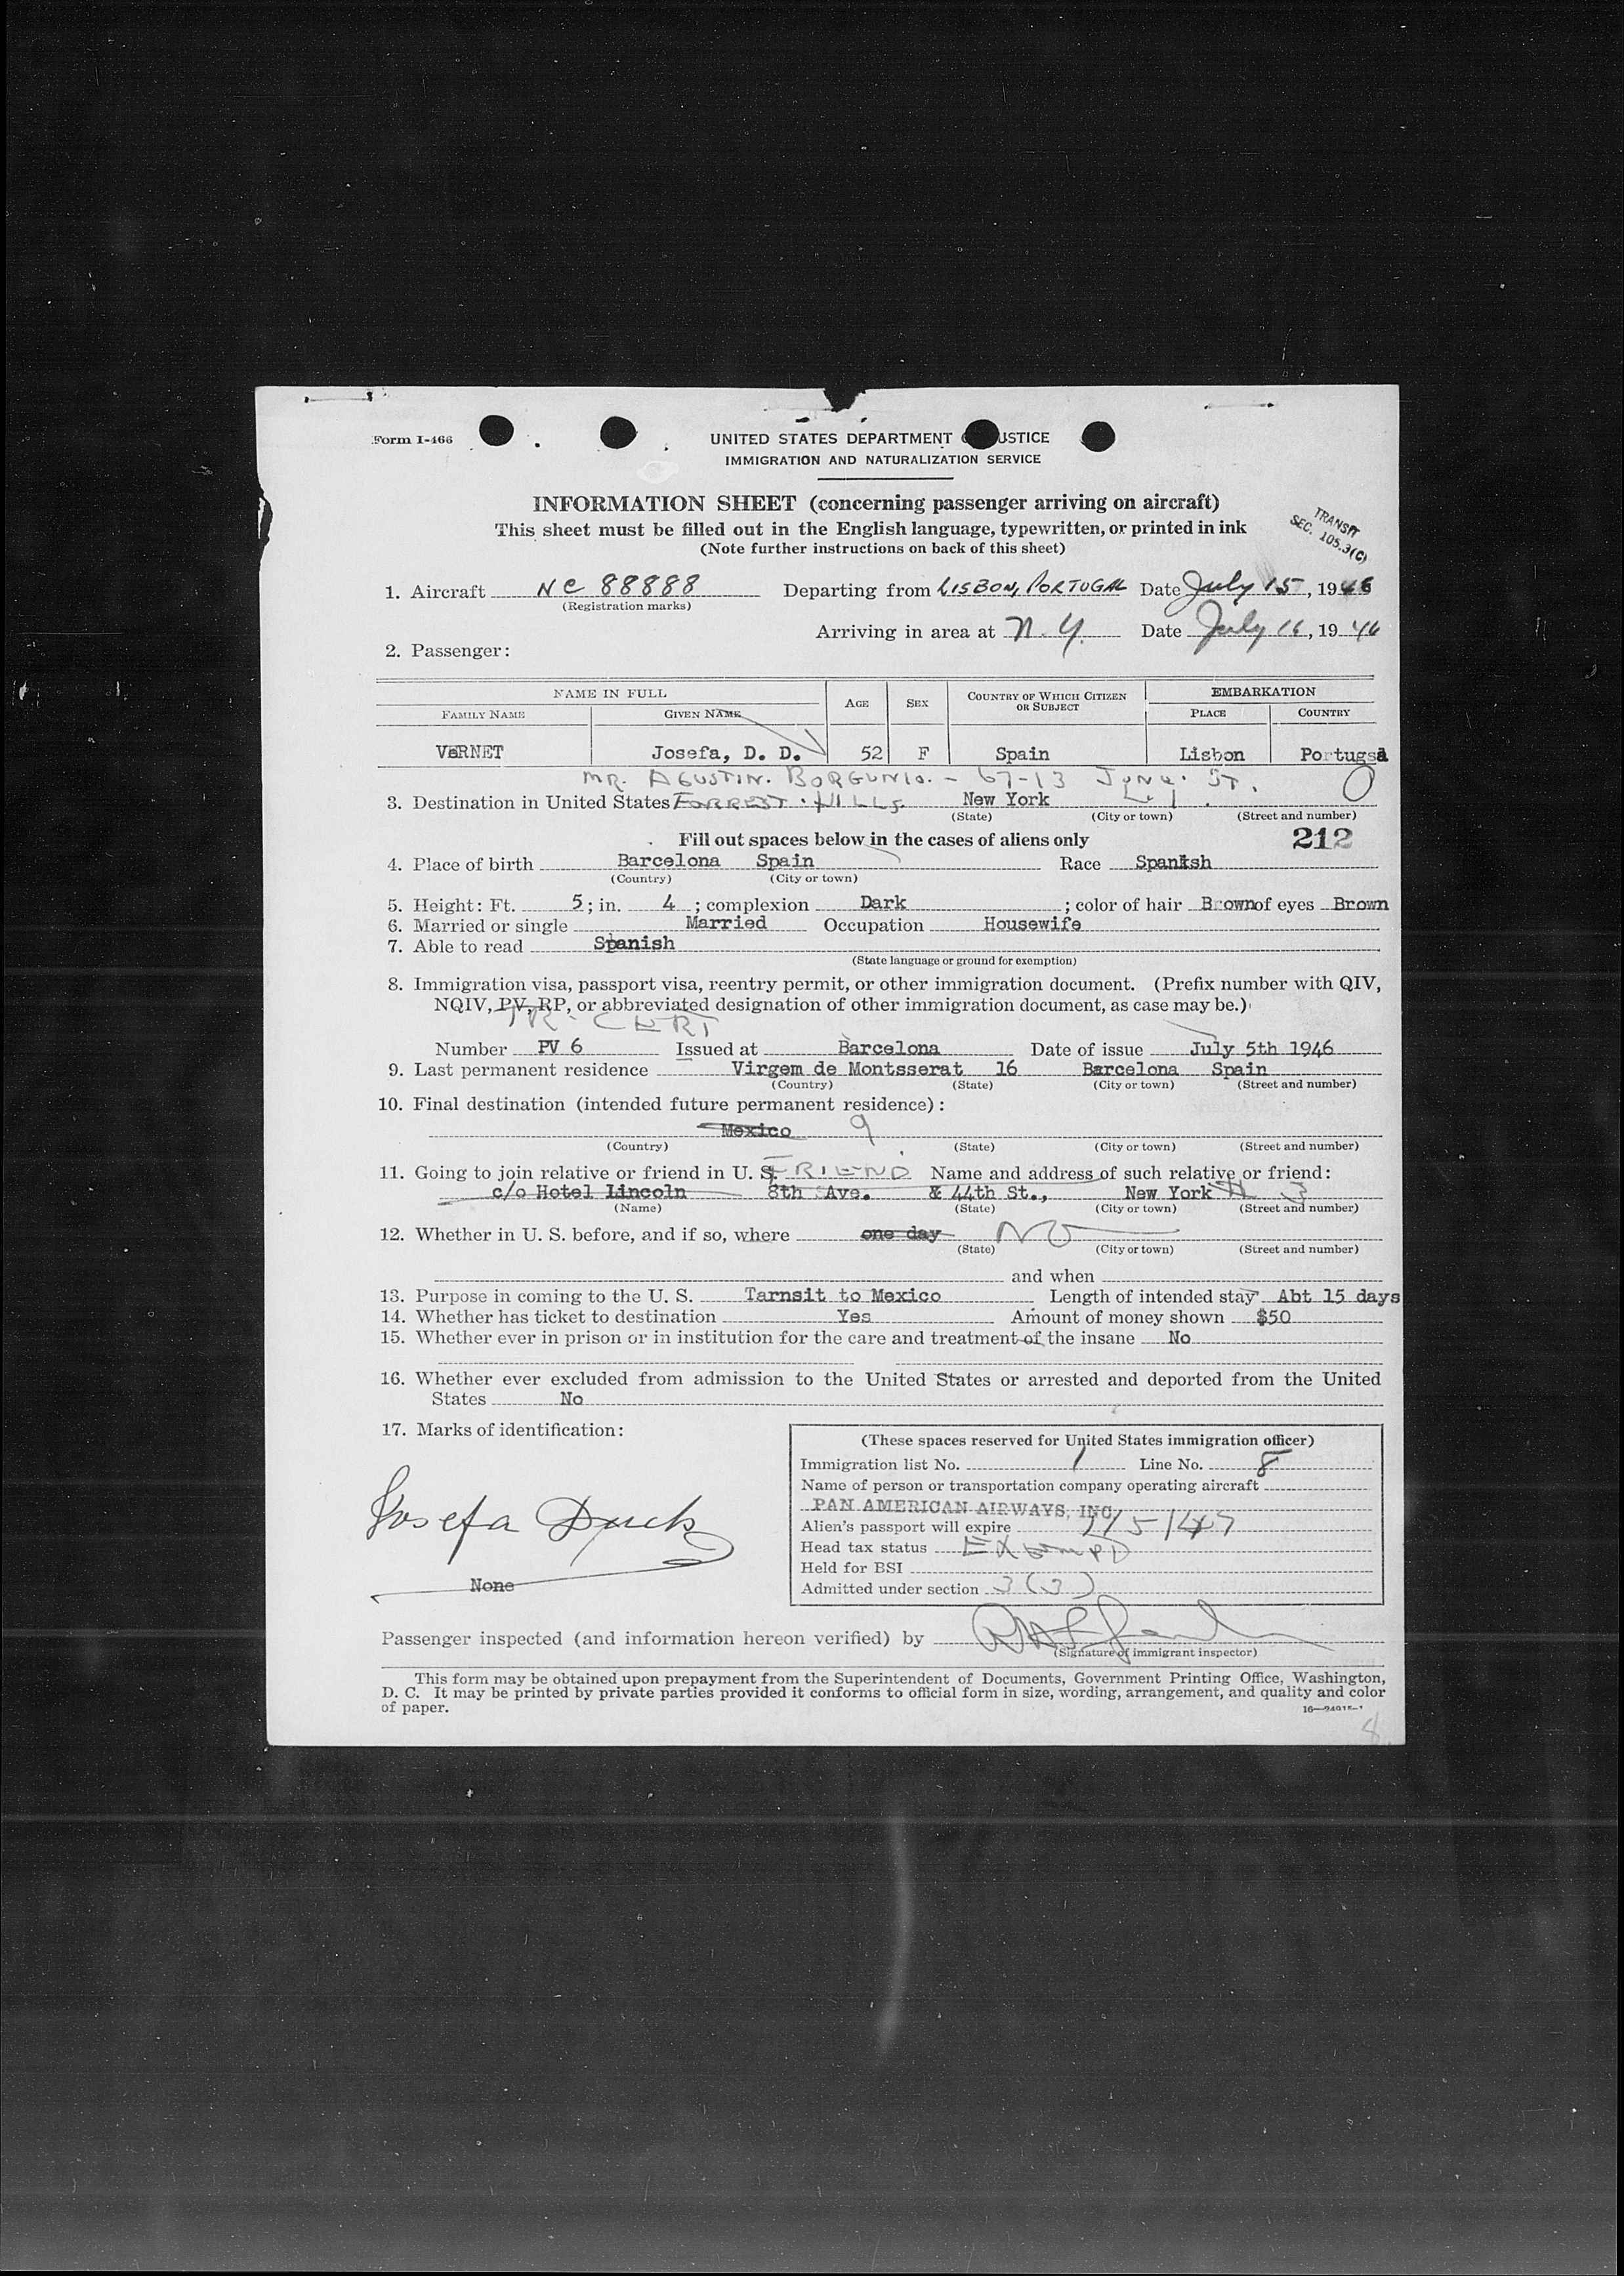 Form I-466
UNITED STATES DEPARTMENT O JUSTICE
IMMIGRATION AND NATURALIZATION SERVICE
INFORMATION SHEET (concerning passenger arriving on aircraft)
This sheet must be filled out in the English language, typewritten, or printed in ink
(Note further instructions on back of this sheet)
TRANSIT
SEC. 105.3(C)
1. Aircraft NC 88888 Departing from LISBON, PORTUGAL Date July 15, 1946
(Registration marks)
Arriving in area at N.Y. Date July 16, 1946
2. Passenger:
NAME IN FULL AGE SEX COUNTRY OF WHICH CITIZEN OR SUBJECT EMBARKATION
FAMILY NAME GIVEN NAME PLACE COUNTRY
VeRNET Josefa, D. D. 52 F Spain Lisbon Portugal
MR. AGUSTIN. BORGUNIO. - 67-13 ST.
3. Destination in United States FORREST HILLS New York L.I.
(State) (City or town) (Street and number)
Fill out spaces below in the cases of aliens only 212
4. Place of birth Barcelona Spain Race Spanish
(Country) (City or town)
5. Height: Ft. 5; in. 4; complexion Dark; color of hair Brown of eyes Brown
6. Married or single Married Occupation Housewife
7. Able to read Spanish
(State language or ground for exemption)
8. Immigration visa, passport visa, reentry permit, or other immigration document. (Prefix number with QIV,
NQIV, PV, RP, or abbreviated designation of other immigration document, as case may be.)
TR. CERT
Number PV 6 Issued at Barcelona Date of issue July 5th 1946
9. Last permanent residence Virgem de Montsserat 16 Barcelona Spain
(Country) (State) (City or town) (Street and number)
10. Final destination (intended future permanent residence):
Mexico 9
(Country) (State) (City or town) (Street and number)
11. Going to join relative or friend in U. S. FRIEND Name and address of such relative or friend:
c/o Hotel Lincoln 8th Ave. & 44th St., New York # 3
(Name) (State) (City or town) (Street and number)
12. Whether in U. S. before, and if so, where one day NO
(State) (City or town) (Street and number)
and when
13. Purpose in coming to the U. S. Tarnsit to Mexico Length of intended stay Abt 15 days
14. Whether has ticket to destination Yes Amount of money shown $50
15. Whether ever in prison or in institution for the care and treatment of the insane No
16. Whether ever excluded from admission to the United States or arrested and deported from the United
States No
17. Marks of identification:
Josefa
None
(These spaces reserved for United States immigration officer)
Immigration list No. 1 Line No. 8
Name of person or transportation company operating aircraft
PAN AMERICAN AIRWAYS, INC.
Alien's passport will expire
Head tax status EXEMPT
Held for BSI
Admitted under section 3(3)
Passenger inspected (and information hereon verified) by
(Signature of immigrant inspector)
This form may be obtained upon prepayment from the Superintendent of Documents, Government Printing Office, Washington,
D. C. It may be printed by private parties provided it conforms to official form in size, wording, arrangement, and quality and color
of paper.
8